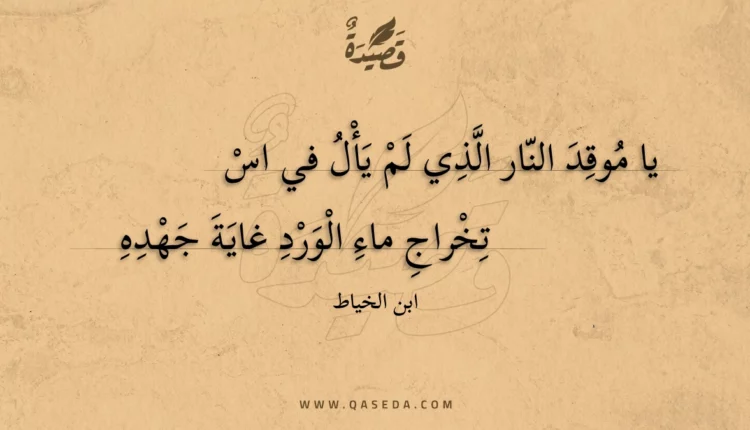 قَصِيْدَةٌ
يا مُوقِدَ النّار الَّذِي لَمْ يَأْلُ في اسْ
تِخْراجِ ماءِ الْوَرْدِ غايَةَ جَهْدِهِ
ابن الخياط
WWW.QASEDA.COM